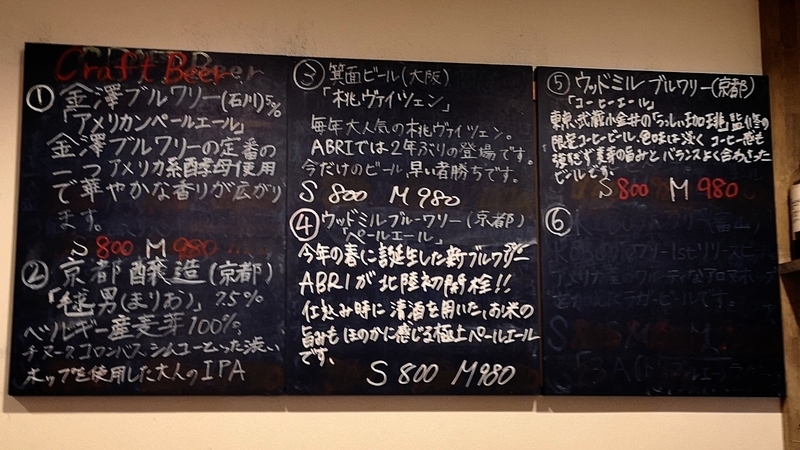 Craft Beer
① 金澤ブルワリー(石川)5%
「アメリカンペールエール」
金澤ブルワリーの定番の
一つアメリカ系酵母使用
で華やかな香りが広がり
ます。
S 800 M 980
② 京都醸造(京都)
「毬男(まりお)」7.5%
ベルギー産麦芽100%
チヌーク コロンバス シムコーといった渋い
ホップを使用した大人のIPA
③ 箕面ビール(大阪)
「桃ヴァイツェン」
毎年大人気の桃ヴァイツェン。
ABRIでは2年ぶりの登場です。
今だけのビール早い者勝ちです。
S 800 M 980
④ ウッドミルブルーワリー(京都)
「ペールエール」5%
今年の春に誕生した新ブルワリー
ABRIが北陸初開栓!!
仕込み時に清酒を用いた、お米の
旨みもほのかに感じる極上ペールエール
です。
S 800 M 980
⑤ ウッドミルブルワリー(京都)
「コーヒーエール」
東京、武蔵小金井の「珈琲」監修の
限定コーヒービール。色味は淡く コーヒー感も
強すぎず麦芽の旨みとバランスよく合わさった
ビールです。
S 800 M 980
⑥